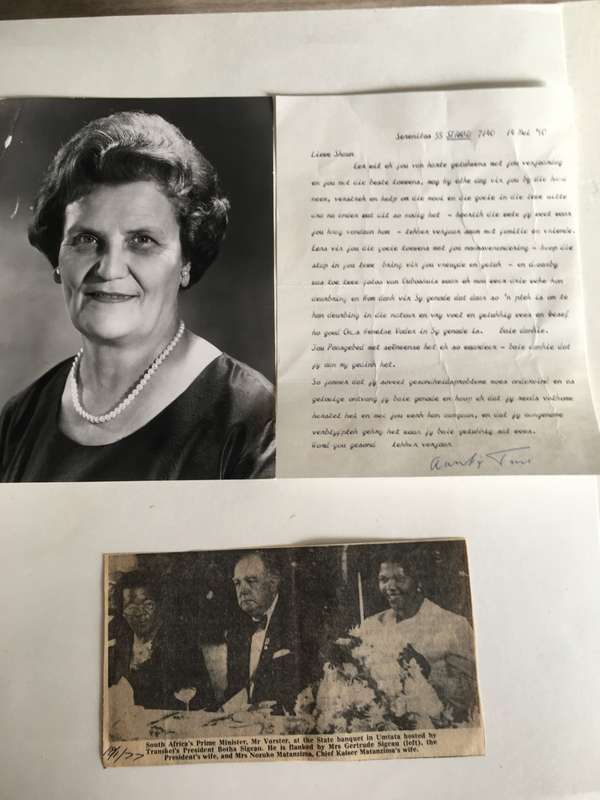 Serenitas 55 STRAND 7140 14 Mei '90
Liewe Shaun
Eers wil ek jou van harte gelukwens met jou verjaarsdag
en jou net die beste toewens, mag Hy elke dag vir jou by die hand
neem, versterk en help om die mooi en die goeie in die lewe uit te
dra na ander wat dit so nodig het - heerlik die
jou nog vandaan kom - lekker verjaar saam met familie en vriende.
Eens vir jou die goeie toewens met jou - hoop die
stap in jou lewe bring vir jou vreugde en geluk - en
twee fotos van waar ek nou weer drie weke kan
deurbring en kan dank vir Sy genade dat daar so 'n plek is om te
kan deurbring in die natuur en vry voel en gelukkig wees en besef
hoe goed ons Hemelse Vader in Sy genade is. Baie dankie.
Jou Paasgebed met seënwense het ek so waardeer - baie dankie dat
jy aan my gedink het.
So jammer dat jy soveel gesondheidsprobleme moes ondervind en as
gelowige ontvang jy baie genade en hoop ek dat jy reeds volkome
herstel het en met jou werk kan aangaan, en dat jy aangename
verblyfplek gekry het waar jy baie gelukkig sal wees.
Hand-jou gesond lekker verjaar
Aunty Tini
South Africa's Prime Minister, Mr Vorster, at the State banquet in Umtata hosted by
Transkei's President Botha Sigcau. He is flanked by Mrs Gertrude Sigcau (left), the
President's wife, and Mrs Nozuko Matanzima, Chief Kaiser Matanzima's wife.